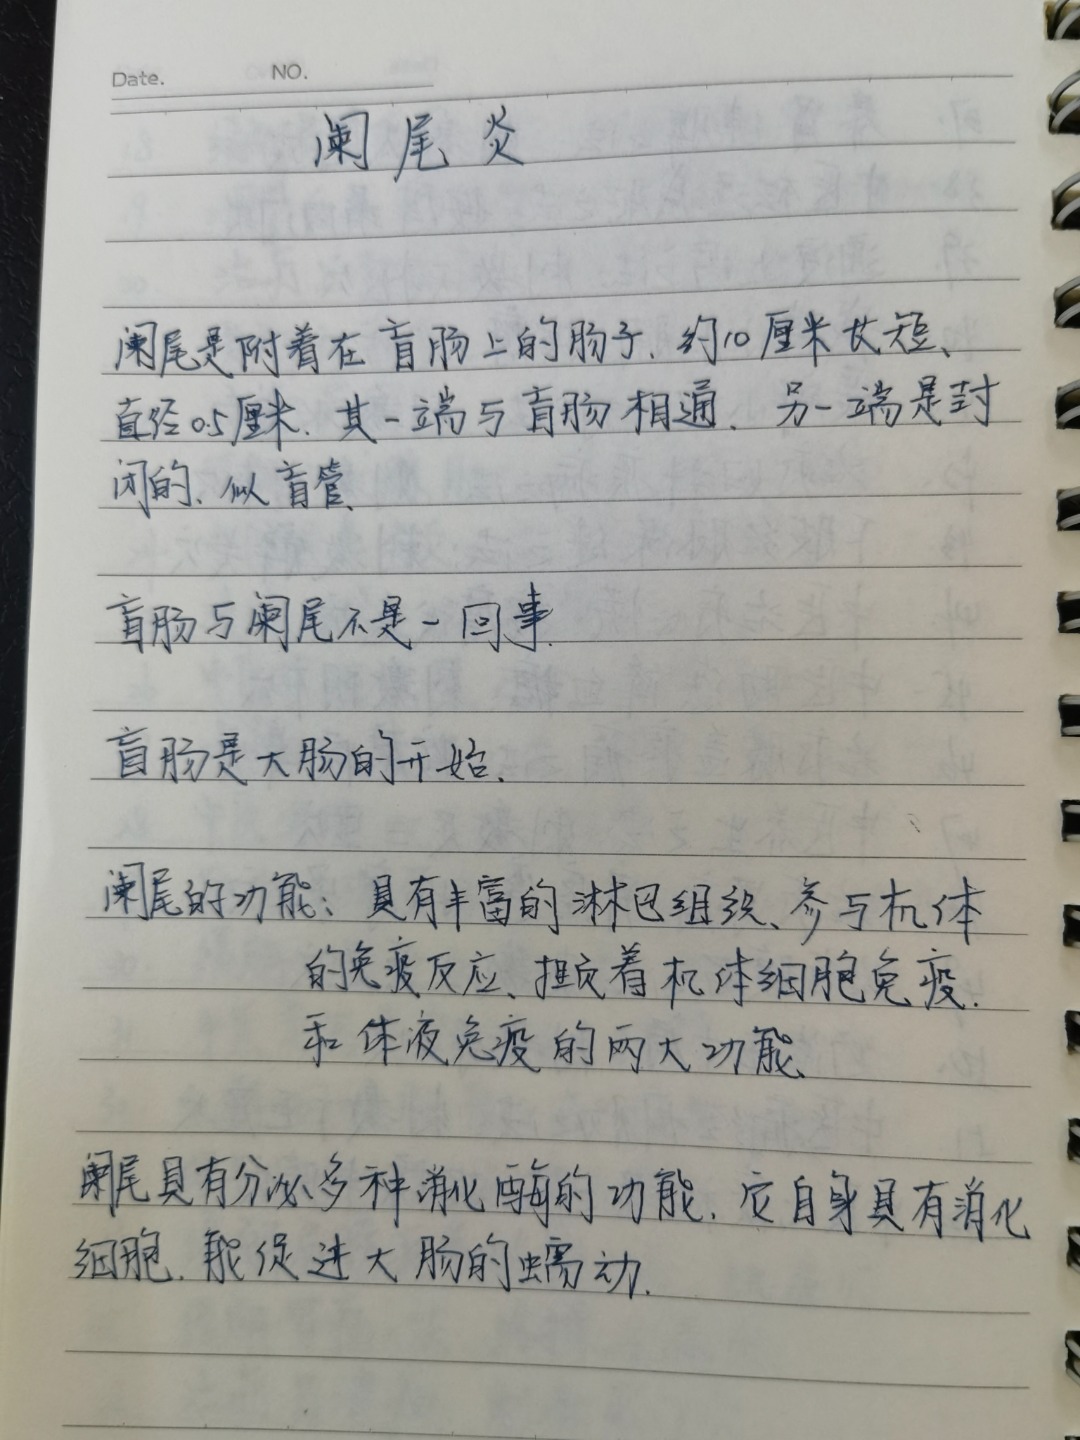 Date. NO.
阑尾炎
阑尾是附着在盲肠上的肠子.约10厘米长短、
直径0.5厘米.其一端与盲肠相通、另一端是封
闭的、似盲管、
盲肠与阑尾不是一回事.
盲肠是大肠的开始、
阑尾的功能：具有丰富的淋巴组织、参与机体
的免疫反应、担负着机体细胞免疫.
和体液免疫的两大功能、
阑尾具有分泌多种消化酶的功能.它自身具有消化
细胞.能促进大肠的蠕动.